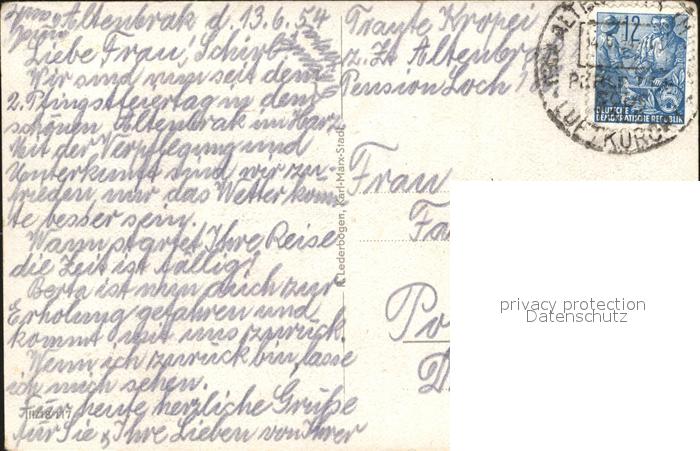 Altenbrak d. 13.6.54
Liebe Frau Schirb
Wir sind nun seit dem
2. Pfingstfeiertag in dem
schönen Altenbrak im Harz
Mit der Verpflegung und
Unterkunft sind wir zu-
frieden nur das Wetter könn
te besser sein.
Wann startet Ihre Reise
die Zeit ist fällig!
Berta ist nun auch zur
Erholung gefahren und
kommt mit uns zurück.
Wenn ich zurück bin, lasse
ich mich sehen.
Für heute herzliche Grüße
für Sie & Ihre Lieben von Ihrer
Traute Kropei
z. Zt Altenbra
Pension Loch
12
DEUTSCHE
DEMOKRATISCHE REPUBLIK
LUFTKURO
Lederbogen, Karl-Marx-Stadt
Frau
privacy protection
Datenschutz